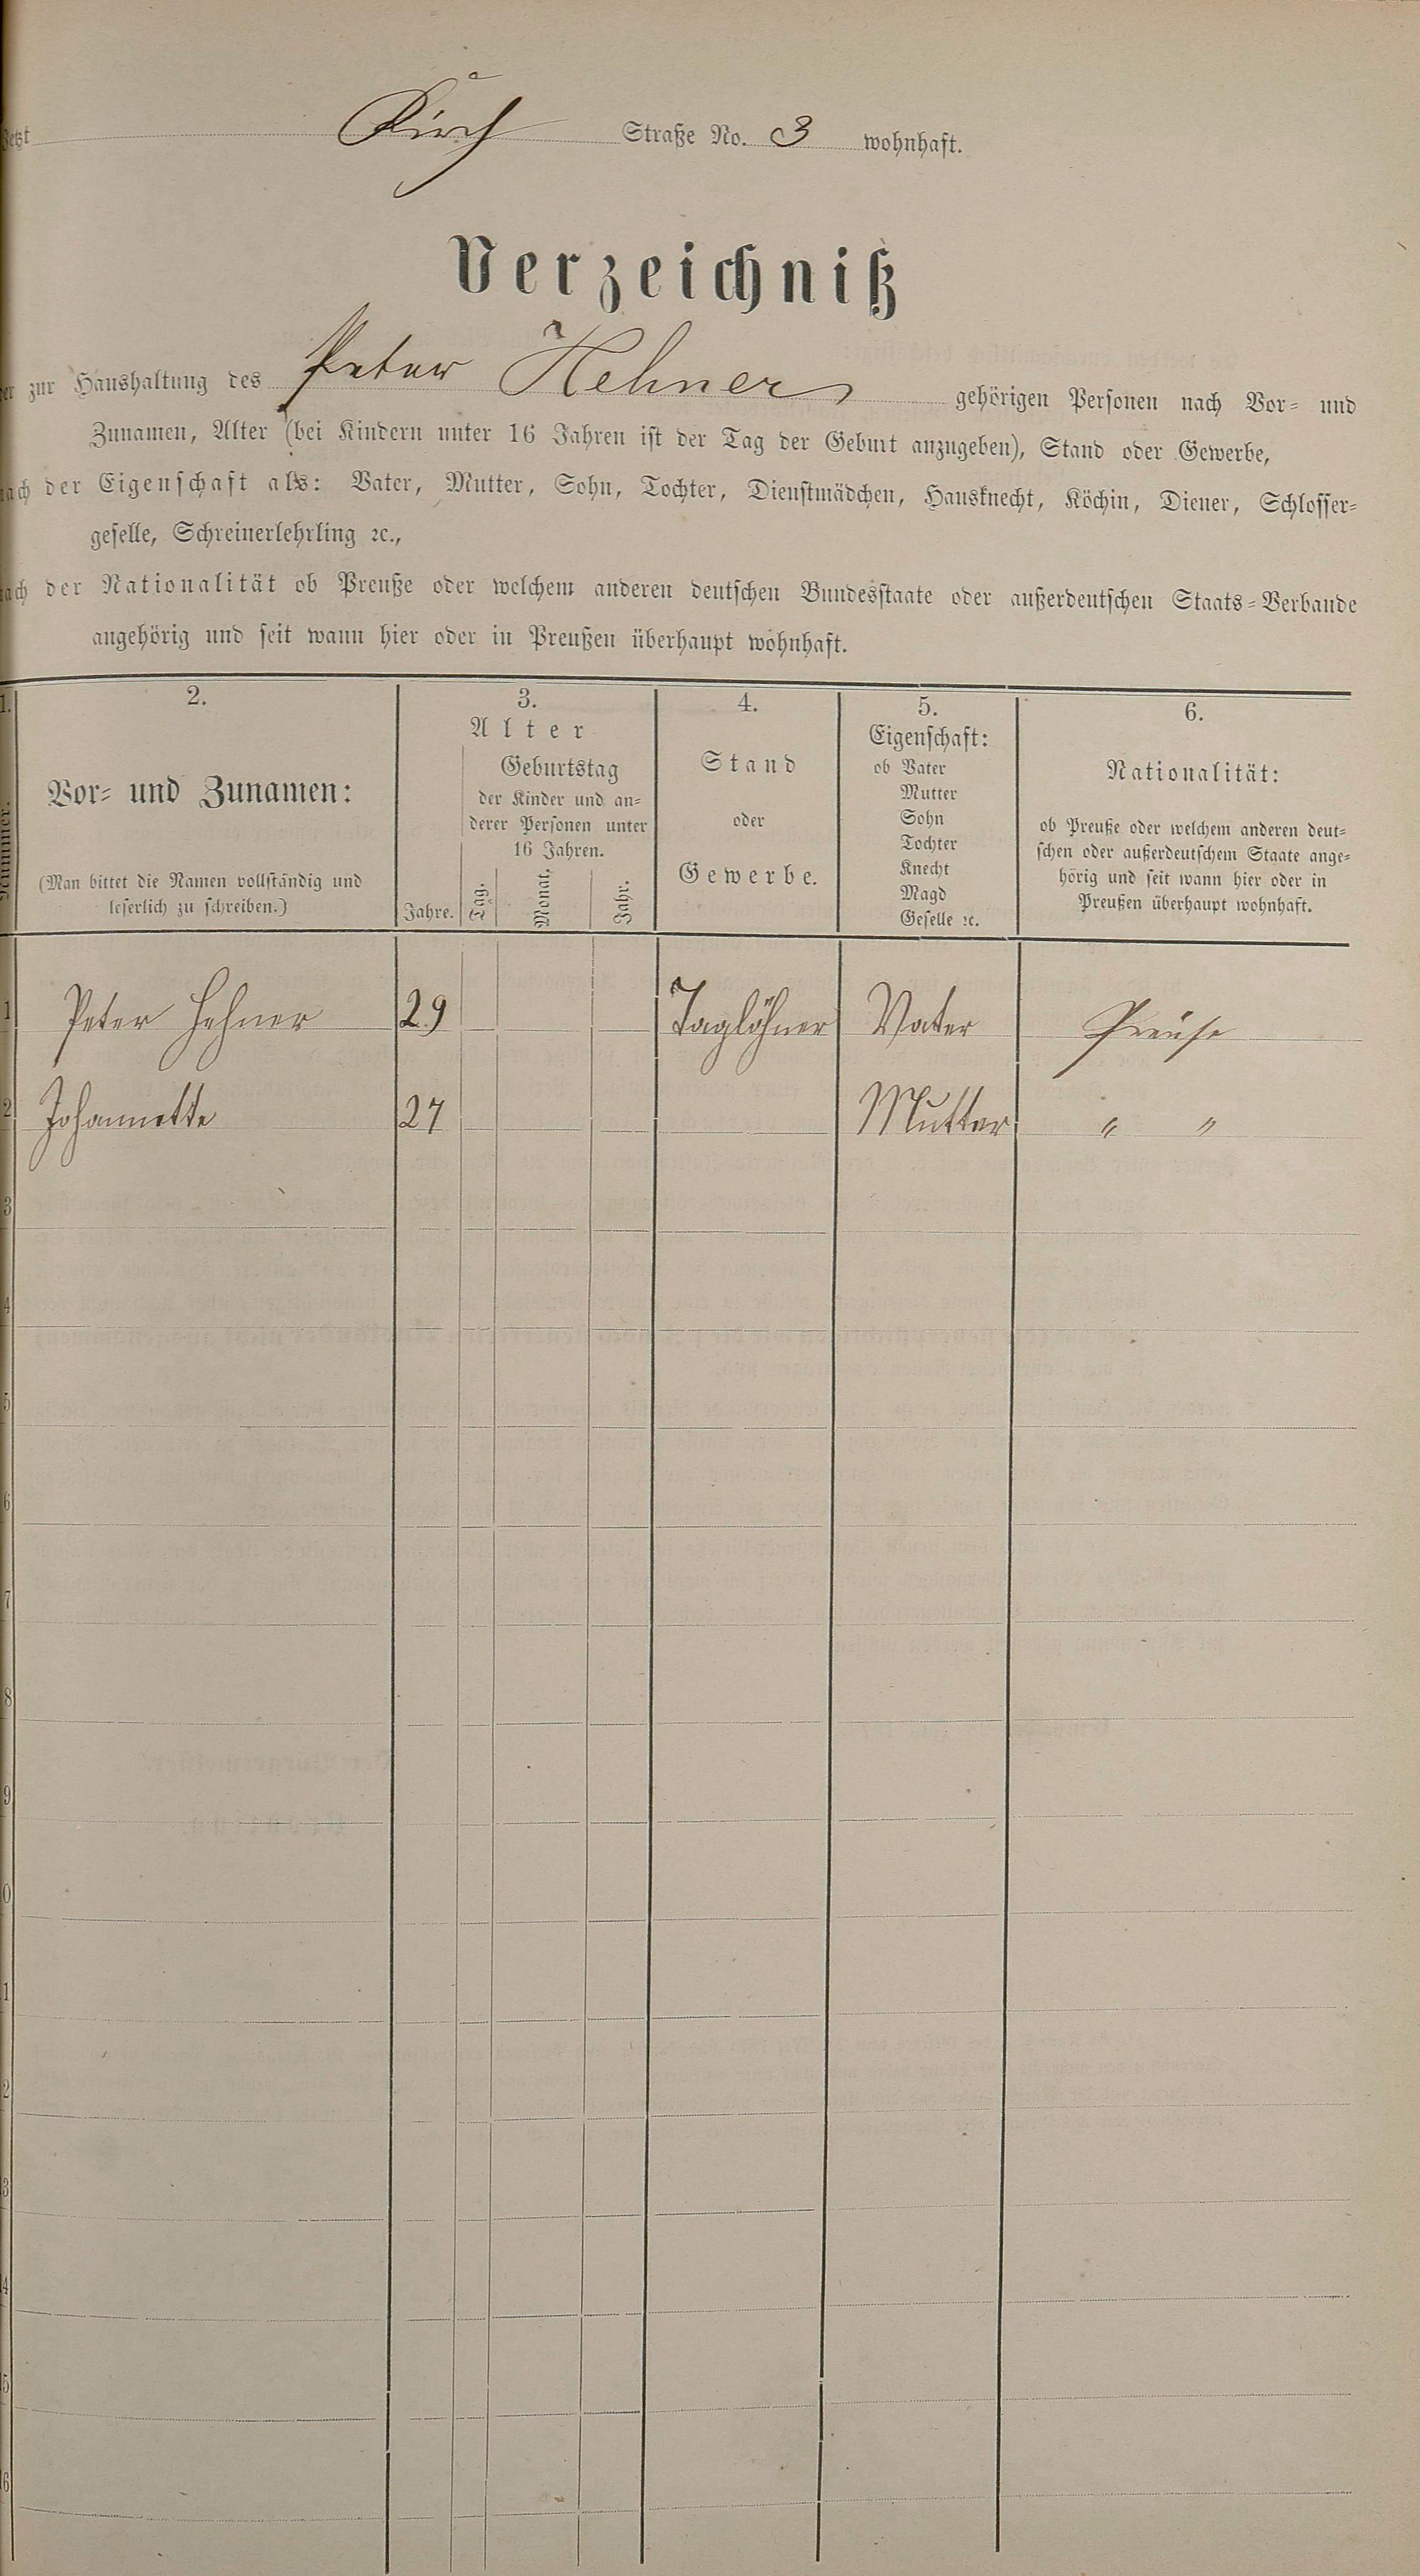 jetzt Kirch Straße No. 3 wohnhaft.
Verzeichniß
der zur Haushaltung des Peter Hehner gehörigen Personen nach Vor- und
Zunamen, Alter (bei Kindern unter 16 Jahren ist der Tag der Geburt anzugeben), Stand oder Gewerbe,
nach der Eigenschaft als: Vater, Mutter, Sohn, Tochter, Dienstmädchen, Hausknecht, Köchin, Diener, Schlosser-
geselle, Schreinerlehrling ꝛc.,
nach der Nationalität ob Preuße oder welchem anderen deutschen Bundesstaate oder außerdeutschen Staats-Verbande
angehörig und seit wann hier oder in Preußen überhaupt wohnhaft.
1.
Nummer.
2.
Vor- und Zunamen:
(Man bittet die Namen vollständig und
leserlich zu schreiben.)
3.
Alter
Geburtstag
der Kinder und an-
derer Personen unter
16 Jahren.
Jahre. Tag. Monat. Jahr.
4.
Stand
oder
Gewerbe.
5.
Eigenschaft:
ob Vater
Mutter
Sohn
Tochter
Knecht
Magd
Geselle ꝛc.
6.
Nationalität:
ob Preuße oder welchem anderen deut-
schen oder außerdeutschem Staate ange-
hörig und seit wann hier oder in
Preußen überhaupt wohnhaft.
1 Peter Hehner 29 Taglöhner Vater Preuse
2 Johannette 27 Mutter " "
3
4
5
6
7
8
9
0
1
2
3
4
5
6